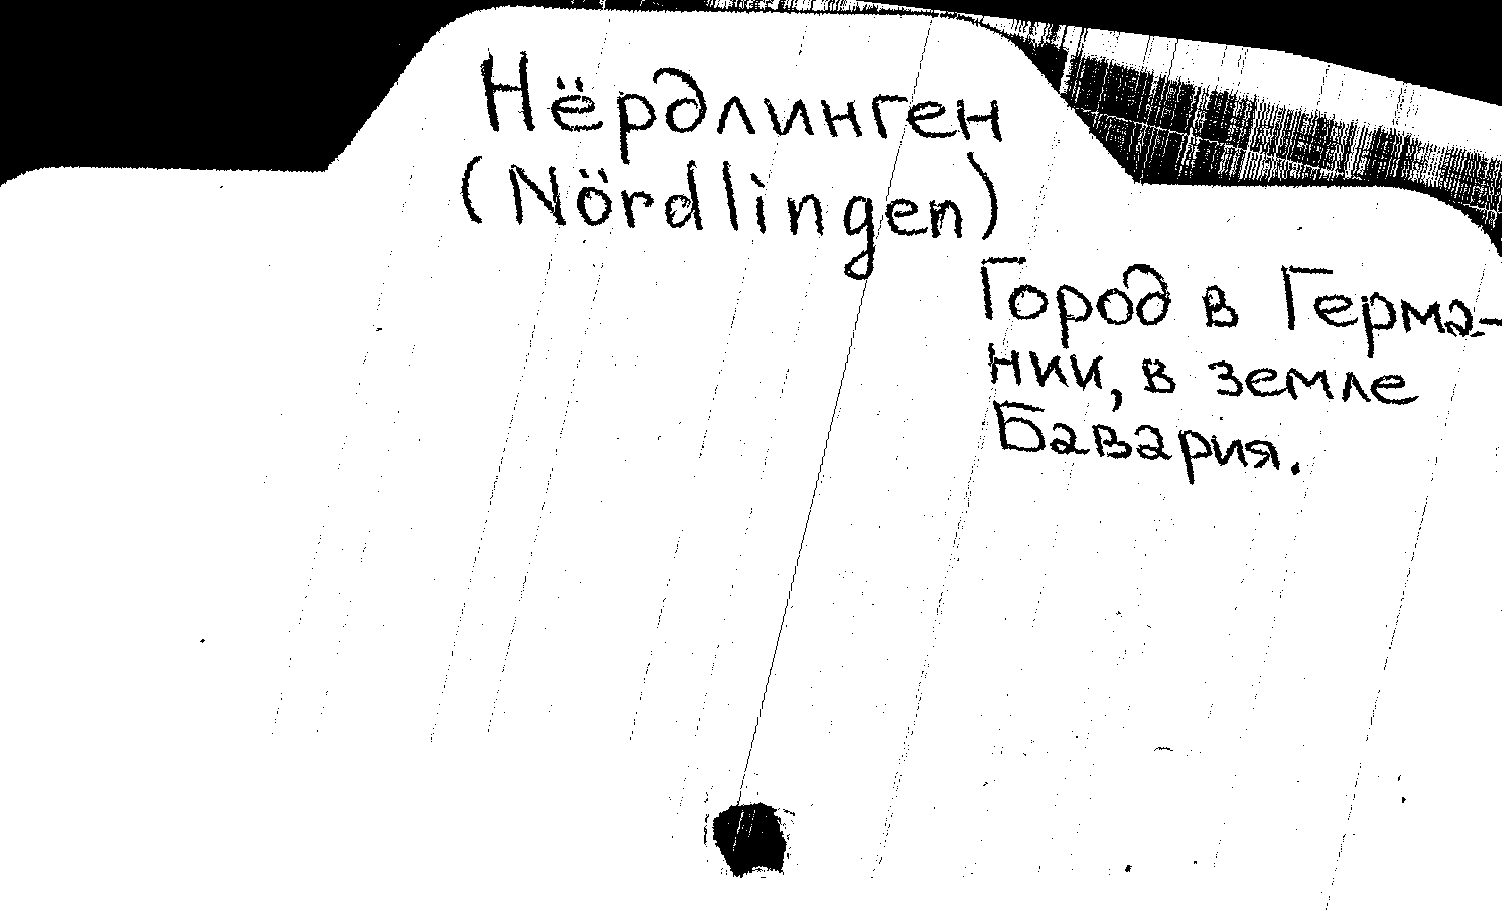 Нёрдлинген
(Nördlingen)
Город в Герма-
нии, в земле
Бавария.